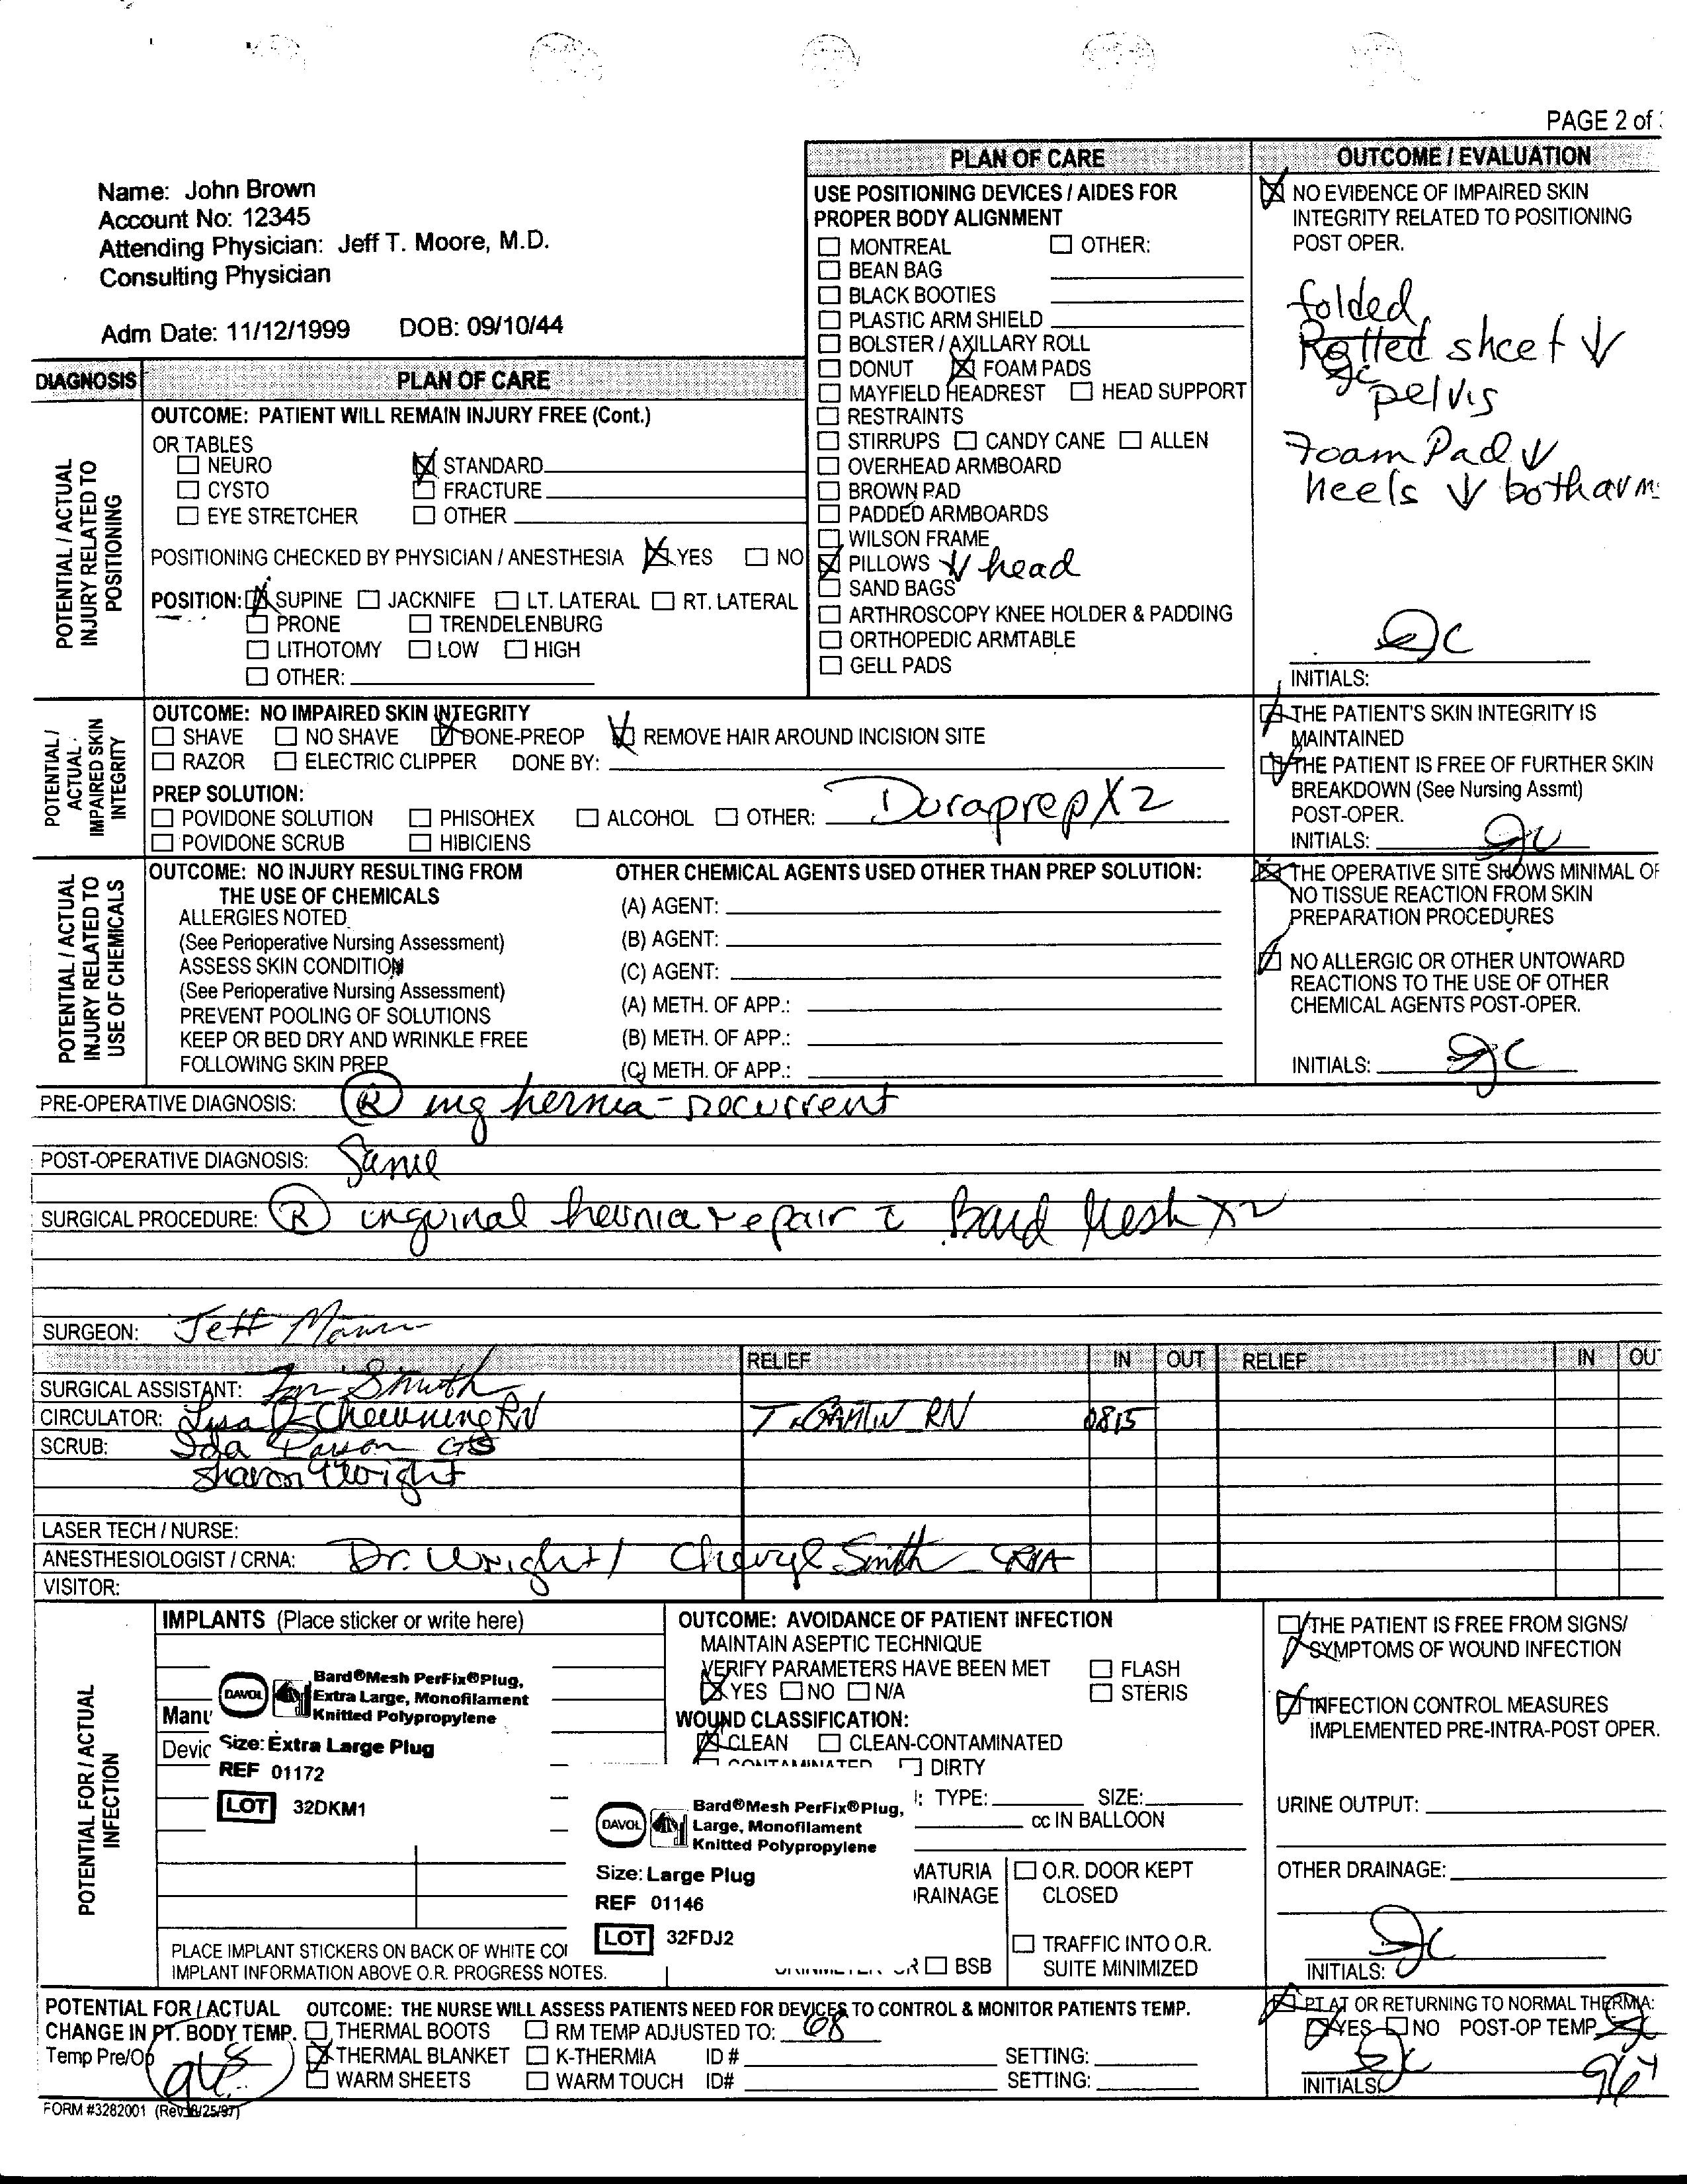 PAGE 2 of
Name: John Brown
Account No: 12345
Attending Physician: Jeff T. Moore, M.D.
Consulting Physician
Adm Date: 11/12/1999 DOB: 09/10/44
DIAGNOSIS
PLAN OF CARE
POTENTIAL / ACTUAL INJURY RELATED TO POSITIONING
OUTCOME: PATIENT WILL REMAIN INJURY FREE (Cont.)
OR TABLES
NEURO STANDARD
CYSTO FRACTURE
EYE STRETCHER OTHER
POSITIONING CHECKED BY PHYSICIAN / ANESTHESIA YES NO
POSITION: SUPINE JACKNIFE LT. LATERAL RT. LATERAL
PRONE TRENDELENBURG
LITHOTOMY LOW HIGH
OTHER:
PLAN OF CARE
USE POSITIONING DEVICES / AIDES FOR
PROPER BODY ALIGNMENT
MONTREAL OTHER:
BEAN BAG
BLACK BOOTIES
PLASTIC ARM SHIELD
BOLSTER / AXILLARY ROLL
DONUT FOAM PADS
MAYFIELD HEADREST HEAD SUPPORT
RESTRAINTS
STIRRUPS CANDY CANE ALLEN
OVERHEAD ARMBOARD
BROWN PAD
PADDED ARMBOARDS
WILSON FRAME
PILLOWS ↓ head
SAND BAGS
ARTHROSCOPY KNEE HOLDER & PADDING
ORTHOPEDIC ARMTABLE
GELL PADS
OUTCOME / EVALUATION
NO EVIDENCE OF IMPAIRED SKIN
INTEGRITY RELATED TO POSITIONING
POST OPER.
folded
Rolled sheet ↓
pelvis
Foam Pad ↓
heels ↓ both arm
INITIALS:
POTENTIAL / ACTUAL IMPAIRED SKIN INTEGRITY
OUTCOME: NO IMPAIRED SKIN INTEGRITY
SHAVE NO SHAVE DONE-PREOP REMOVE HAIR AROUND INCISION SITE
RAZOR ELECTRIC CLIPPER DONE BY:
PREP SOLUTION:
POVIDONE SOLUTION PHISOHEX ALCOHOL OTHER: Duraprep X2
POVIDONE SCRUB HIBICIENS
THE PATIENT'S SKIN INTEGRITY IS
MAINTAINED
THE PATIENT IS FREE OF FURTHER SKIN
BREAKDOWN (See Nursing Assmt)
POST-OPER.
INITIALS:
POTENTIAL / ACTUAL INJURY RELATED TO USE OF CHEMICALS
OUTCOME: NO INJURY RESULTING FROM
THE USE OF CHEMICALS
ALLERGIES NOTED
(See Perioperative Nursing Assessment)
ASSESS SKIN CONDITION
(See Perioperative Nursing Assessment)
PREVENT POOLING OF SOLUTIONS
KEEP OR BED DRY AND WRINKLE FREE
FOLLOWING SKIN PREP
OTHER CHEMICAL AGENTS USED OTHER THAN PREP SOLUTION:
(A) AGENT:
(B) AGENT:
(C) AGENT:
(A) METH. OF APP.:
(B) METH. OF APP.:
(C) METH. OF APP.:
THE OPERATIVE SITE SHOWS MINIMAL OF
NO TISSUE REACTION FROM SKIN
PREPARATION PROCEDURES
NO ALLERGIC OR OTHER UNTOWARD
REACTIONS TO THE USE OF OTHER
CHEMICAL AGENTS POST-OPER.
INITIALS: JC
PRE-OPERATIVE DIAGNOSIS: (R) ing hernia - recurrent
POST-OPERATIVE DIAGNOSIS: Same
SURGICAL PROCEDURE: (R) inguinal hernia repair c Bard Mesh X2
SURGEON: Jeff
RELIEF IN OUT RELIEF IN OU
SURGICAL ASSISTANT: Smith
CIRCULATOR: Lisa Chewning RN T. RN 0815
SCRUB: Ida
Sharon Wright
LASER TECH / NURSE:
ANESTHESIOLOGIST / CRNA: Dr. Wright / Cheryl Smith CRNA
VISITOR:
POTENTIAL FOR / ACTUAL INFECTION
IMPLANTS (Place sticker or write here)
Manu
Devic
DAVOL
Bard®Mesh PerFix®Plug,
Extra Large, Monofilament
Knitted Polypropylene
Size: Extra Large Plug
REF 01172
LOT 32DKM1
DAVOL
Bard®Mesh PerFix®Plug,
Large, Monofilament
Knitted Polypropylene
Size: Large Plug
REF 01146
LOT 32FDJ2
PLACE IMPLANT STICKERS ON BACK OF WHITE CO
IMPLANT INFORMATION ABOVE O.R. PROGRESS NOTES.
OUTCOME: AVOIDANCE OF PATIENT INFECTION
MAINTAIN ASEPTIC TECHNIQUE
VERIFY PARAMETERS HAVE BEEN MET FLASH
YES NO N/A STERIS
WOUND CLASSIFICATION:
CLEAN CLEAN-CONTAMINATED
CONTAMINATED DIRTY
TYPE: SIZE:
cc IN BALLOON
MATURIA O.R. DOOR KEPT
RAINAGE CLOSED
TRAFFIC INTO O.R.
BSB SUITE MINIMIZED
THE PATIENT IS FREE FROM SIGNS/
SYMPTOMS OF WOUND INFECTION
INFECTION CONTROL MEASURES
IMPLEMENTED PRE-INTRA-POST OPER.
URINE OUTPUT:
OTHER DRAINAGE:
INITIALS:
POTENTIAL FOR / ACTUAL
CHANGE IN PT. BODY TEMP.
Temp Pre/Op
OUTCOME: THE NURSE WILL ASSESS PATIENTS NEED FOR DEVICES TO CONTROL & MONITOR PATIENTS TEMP.
THERMAL BOOTS RM TEMP ADJUSTED TO: 68
THERMAL BLANKET K-THERMIA ID # SETTING:
WARM SHEETS WARM TOUCH ID# SETTING:
PT AT OR RETURNING TO NORMAL THERMIA:
YES NO POST-OP TEMP
INITIALS
FORM #3282001 (Rev 8/25/97)